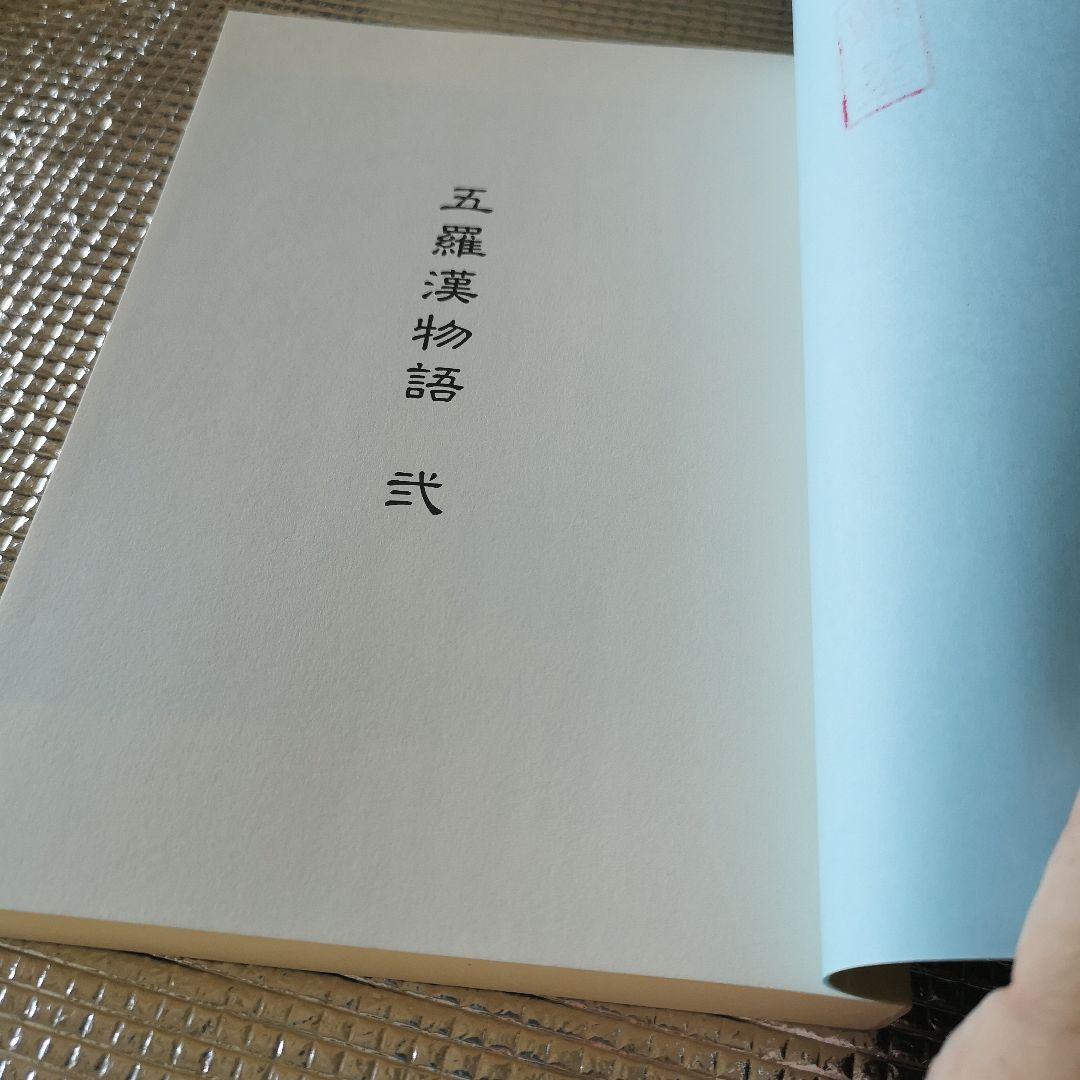 五羅漢物語 弐